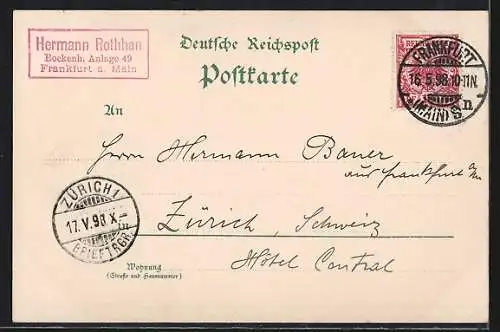 Hermann Rothhan
Bockenh. Anlage 49
Frankfurt a. Main
Deutsche Reichspost
Postkarte
FRANKFURT
16.5.98.10-11N.
(MAIN) 9 n
An
Herrn Hermann Bauer
aus Frankfurt a/M
in Zürich, Schweiz
Hôtel Central
ZÜRICH 1
17.V.98 X-
BRIEFTRGR.
Wohnung
(Straße und Hausnummer)